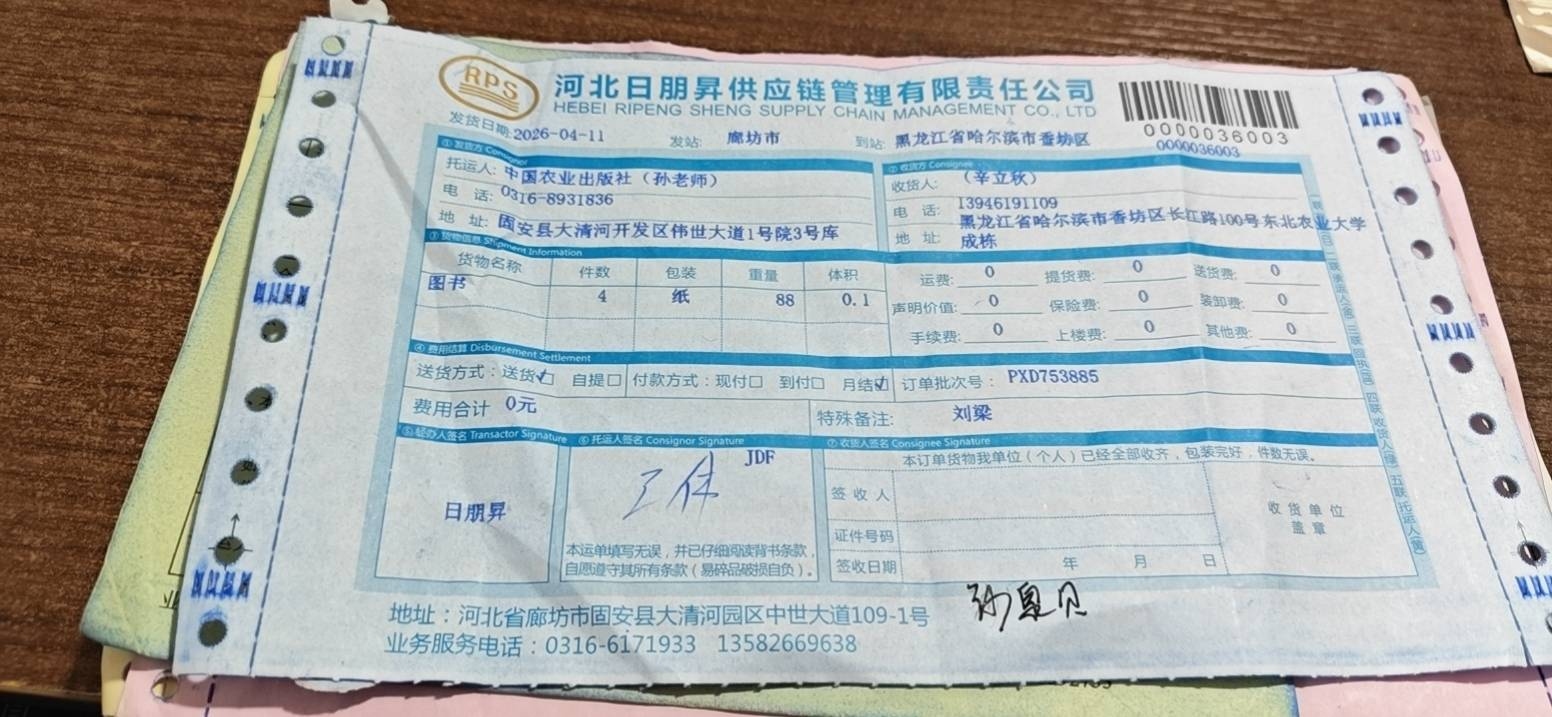 RPS
河北日朋昇供应链管理有限责任公司
HEBEI RIPENG SHENG SUPPLY CHAIN MANAGEMENT CO., LTD
0000036003
0000036003
发货日期:2026-04-11 发站: 廊坊市 到站: 黑龙江省哈尔滨市香坊区
①发货方 Consignor ②收货方 Consignee
托运人: 中国农业出版社（孙老师） 收货人: （辛立秋）
电 话: 0316-8931836 电 话: 13946191109
地 址: 固安县大清河开发区伟世大道1号院3号库 地 址: 黑龙江省哈尔滨市香坊区长江路100号东北农业大学
成栋
③货物信息 Shipment Information
货物名称 件数 包装 重量 体积 运费: 0 提货费: 0 送货费: 0
图书 4 纸 88 0.1 声明价值: 0 保险费: 0 装卸费: 0
手续费: 0 上楼费: 0 其他费: 0
④费用结算 Disbursement Settlement
送货方式：送货☑ 自提□ 付款方式：现付□ 到付□ 月结☑ 订单批次号： PXD753885
费用合计 0元 特殊备注: 刘梁
⑤经办人签名 Transactor Signature ⑥托运人签名 Consignor Signature ⑦收货人签名 Consignee Signature
JDF
本订单货物我单位（个人）已经全部收齐，包装完好，件数无误。
日朋昇
签收人
收货单位
盖章
证件号码
本运单填写无误，并已仔细阅读背书条款，
自愿遵守其所有条款（易碎品破损自负）。
签收日期 年 月 日
地址：河北省廊坊市固安县大清河园区中世大道109-1号
业务服务电话：0316-6171933 13582669638